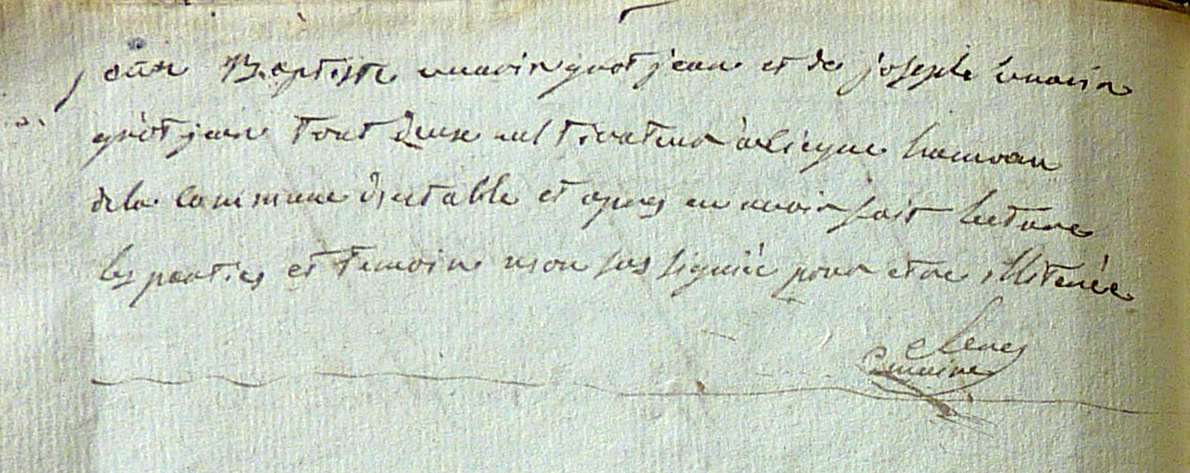 jean Baptiste mavinguot jean et de joseph mavin
guot jean tout deux cultivateur hameau
de la commune d'estable et apres en avoir fait lecture
les parties et temoin non pas signée pour etre illiterée
Clenes
maire